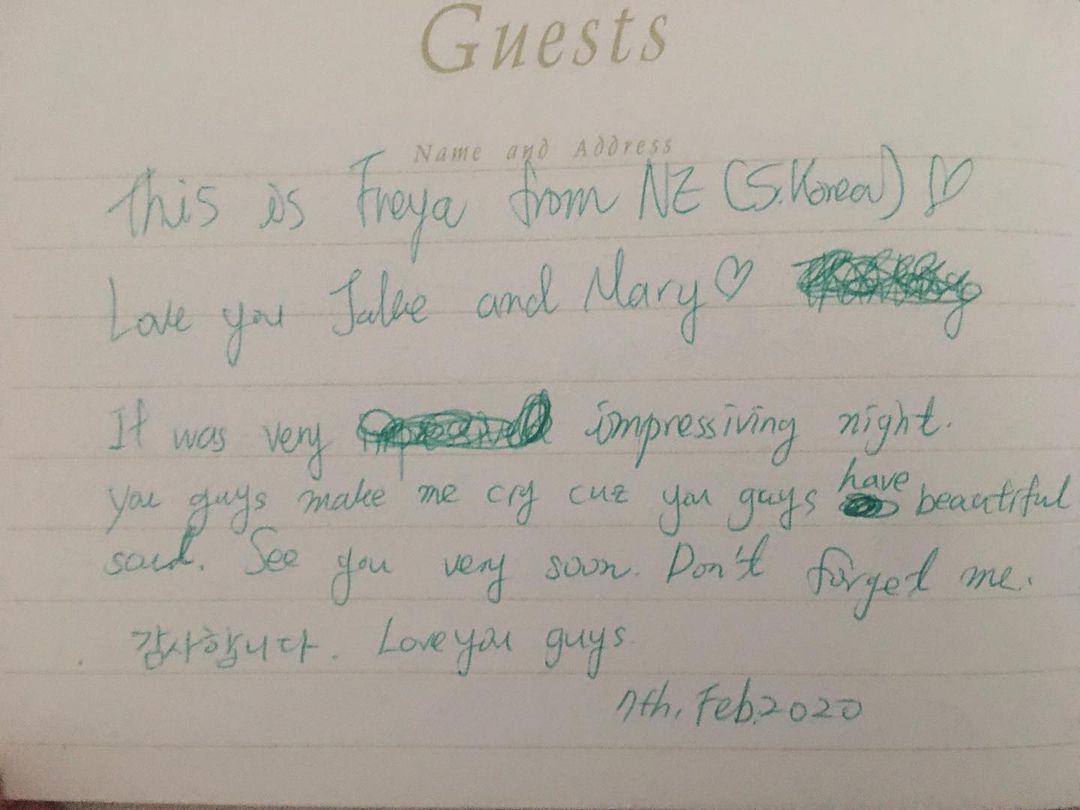 Guests
Name and Address
This is Freya from NZ (S.Korea) ♡
Love you and Mary ♡
It was very impressiving night.
you guys make me cry cuz you guys have beautiful
soul. See you very soon. Don't forget me.
감사합니다. Love you guys
7th, Feb.2020